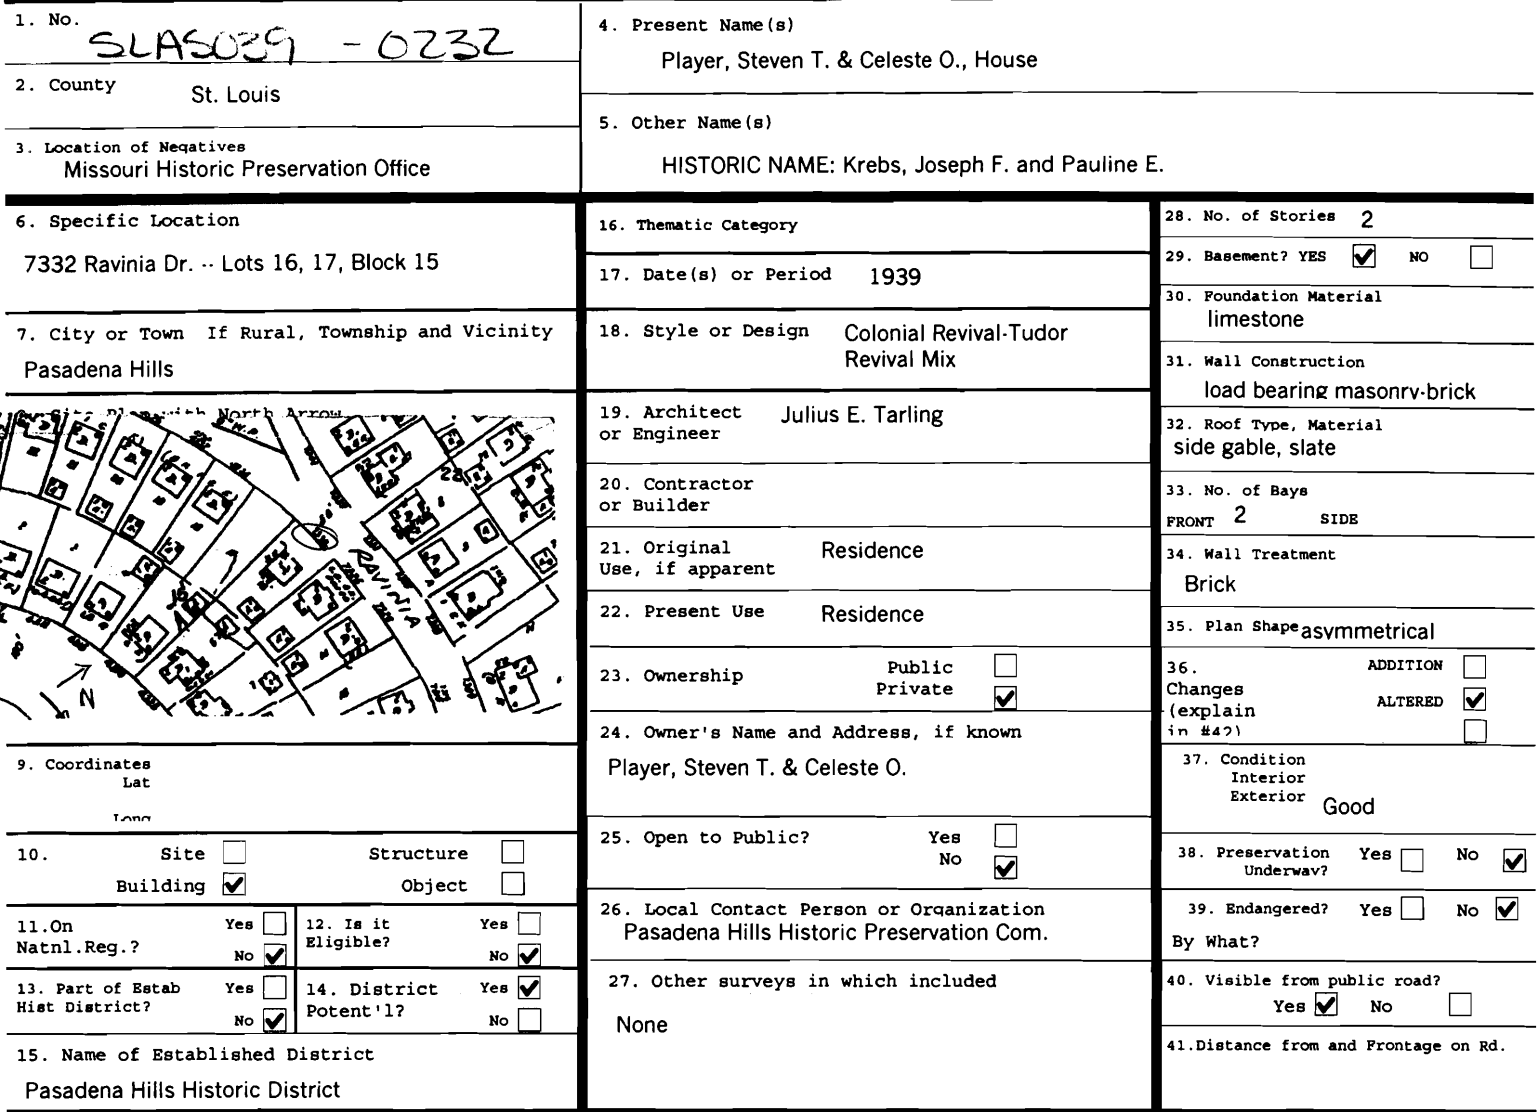 1. No.
SLAS039 - 0232
2. County
St. Louis
3. Location of Negatives
Missouri Historic Preservation Office
4. Present Name(s)
Player, Steven T. & Celeste O., House
5. Other Name(s)
HISTORIC NAME: Krebs, Joseph F. and Pauline E.
6. Specific Location
7332 Ravinia Dr. -- Lots 16, 17, Block 15
7. City or Town If Rural, Township and Vicinity
Pasadena Hills
Site Plan with North Arrow
RAVINIA
22
N
9. Coordinates
Lat
Long
10. Site Structure
Building Object
11.On Yes
Natnl.Reg.? No
12. Is it Yes
Eligible? No
13. Part of Estab Yes
Hist District? No
14. District Yes
Potent'l? No
15. Name of Established District
Pasadena Hills Historic District
16. Thematic Category
17. Date(s) or Period 1939
18. Style or Design Colonial Revival-Tudor
Revival Mix
19. Architect Julius E. Tarling
or Engineer
20. Contractor
or Builder
21. Original Residence
Use, if apparent
22. Present Use Residence
23. Ownership Public
Private
24. Owner's Name and Address, if known
Player, Steven T. & Celeste O.
25. Open to Public? Yes
No
26. Local Contact Person or Organization
Pasadena Hills Historic Preservation Com.
27. Other surveys in which included
None
28. No. of Stories 2
29. Basement? YES NO
30. Foundation Material
limestone
31. Wall Construction
load bearing masonry-brick
32. Roof Type, Material
side gable, slate
33. No. of Bays
FRONT 2 SIDE
34. Wall Treatment
Brick
35. Plan Shape asymmetrical
36. ADDITION
Changes ALTERED
(explain
in #42)
37. Condition
Interior
Exterior Good
38. Preservation Yes No
Underway?
39. Endangered? Yes No
By What?
40. Visible from public road?
Yes No
41.Distance from and Frontage on Rd.